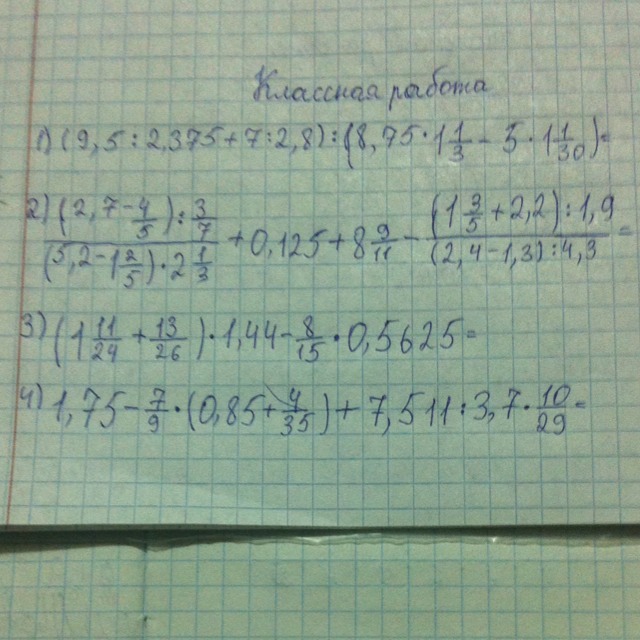 Классная работа
1) (9,5:2,375+7:2,8):(8,75·1 1/3-5·1 1/30)=
2) (2,7-4/5):3/7 / (5,2-1 2/5)·2 1/3 +0,125+8 9/11- (1 3/5+2,2):1,9 / (2,4-1,3):4,3 =
3) (1 11/24+13/26)·1,44-8/15·0,5625=
4) 1,75-7/9·(0,85+4/35)+7,511:3,7·10/29=